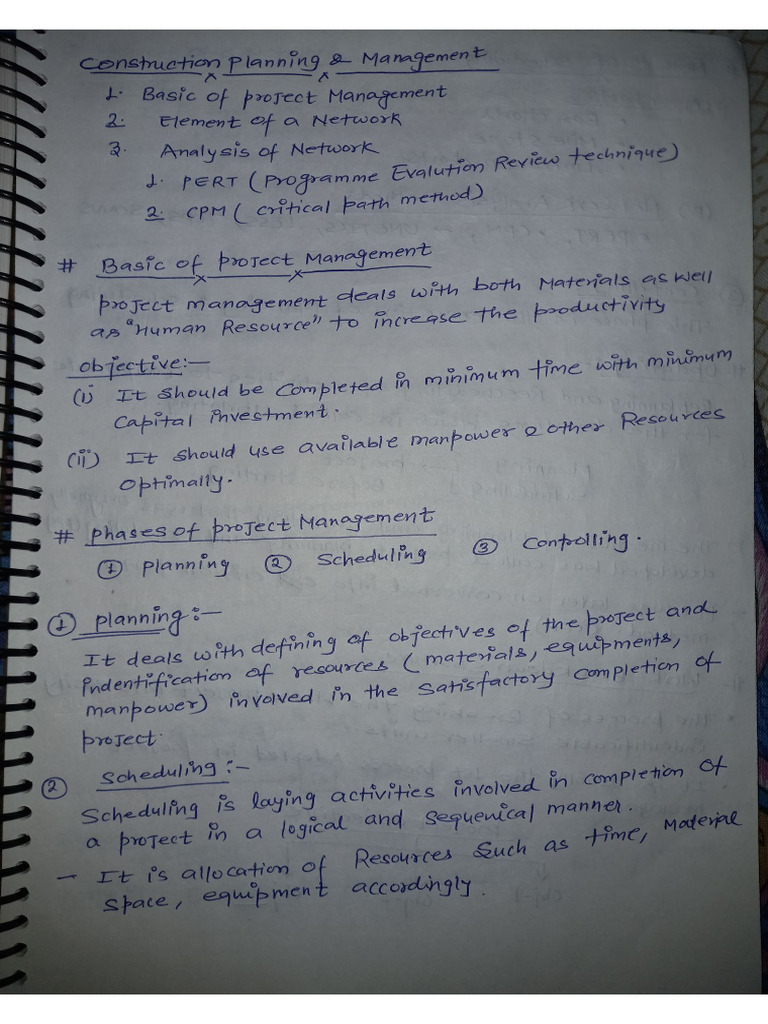 Construction Planning & Management
1. Basic of project Management
2. Element of a Network
3. Analysis of Network
1. PERT (Programme Evalution Review technique)
2. CPM ( critical path method)
# Basic of project Management
project management deals with both Materials as well
as "Human Resource" to increase the productivity
objective:-
(i) It should be completed in minimum time with minimum
capital investment.
(ii) It should use available manpower & other Resources
optimally.
# phases of project Management
① planning ② Scheduling ③ Controlling.
① planning:-
It deals with defining of objectives of the project and
indentification of resources ( materials, equipments,
manpower) involved in the satisfactory completion of
project.
② Scheduling :-
Scheduling is laying activities involved in completion of
a project in a logical and sequenical manner.
- It is allocation of Resources such as time, Material
space, equipment accordingly.